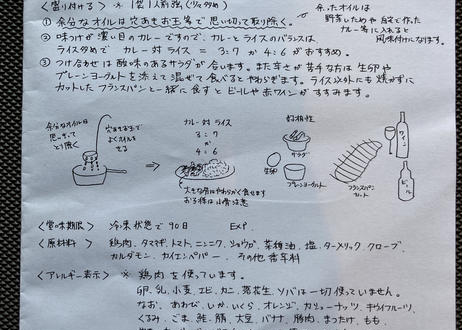 <盛り付け> ※ 1袋1人前強(少々多め)
余ったオイルは
野菜いためや 鍋で作った
カレー等に入れると
風味付けになります。
① 余分なオイルは穴あきお玉等で思い切って取り除く。
② 味つけが濃い目のカレーですので、カレーとライスのバランスは
ライス多めで カレー対ライス = 3:7 か 4:6 がおすすめ。
③ つけ合せは酸味のあるサラダが合います。また辛さが苦手な方は 生卵や
プレーンヨーグルトを添えて混ぜて食べるとやわらぎます。ライス以外にも 焼かずに
カットしたフランスパンと一緒に食すとビールや赤ワインがすすみます。
余分なオイルは
思いきって
とり除く
穴あきお玉で
よくオイルを
きる
カレー対ライス
3:7
か
4:6
大きな骨はやわらかく食せます
好相性
サラダ
生卵
プレーンヨーグルト
フランスパン
カット
ワイン
ビール
<賞味期限> 冷凍状態で90日 EXP.
<原材料> 鶏肉、タマネギ、トマト、ニンニク、ショウガ、菜種油、塩、ターメリック、クローブ、
カルダモン、カイエンペパー、その他香辛料
<アレルギー表示> ※ 鶏肉を使っています。
卵、乳、小麦、エビ、カニ、落花生、ソバは一切使っていません。
なお、あわび、いか、いくら、オレンジ、カシューナッツ、キウイフルーツ、
くるみ、ごま、鮭、鯖、大豆、バナナ、豚肉、まつたけ、もも、